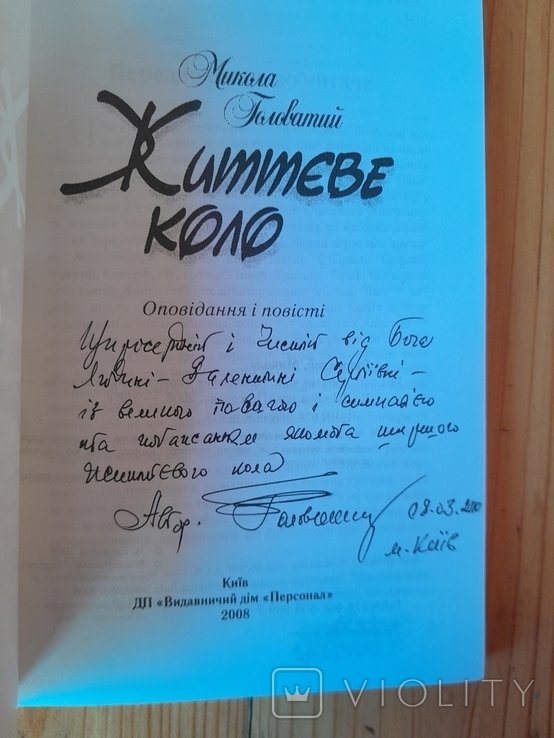 Микола
Головатий
Життєве
коло
Оповідання і повісті
Щиросердній і Чистій від Бога
Людині – Валентині Сергіївні –
із великою повагою і симпатією
та побажанням якомога ширшого
життєвого кола
Автор. 08.03.2010
м. Київ
Київ
ДП «Видавничий дім «Персонал»
2008
VIOLITY